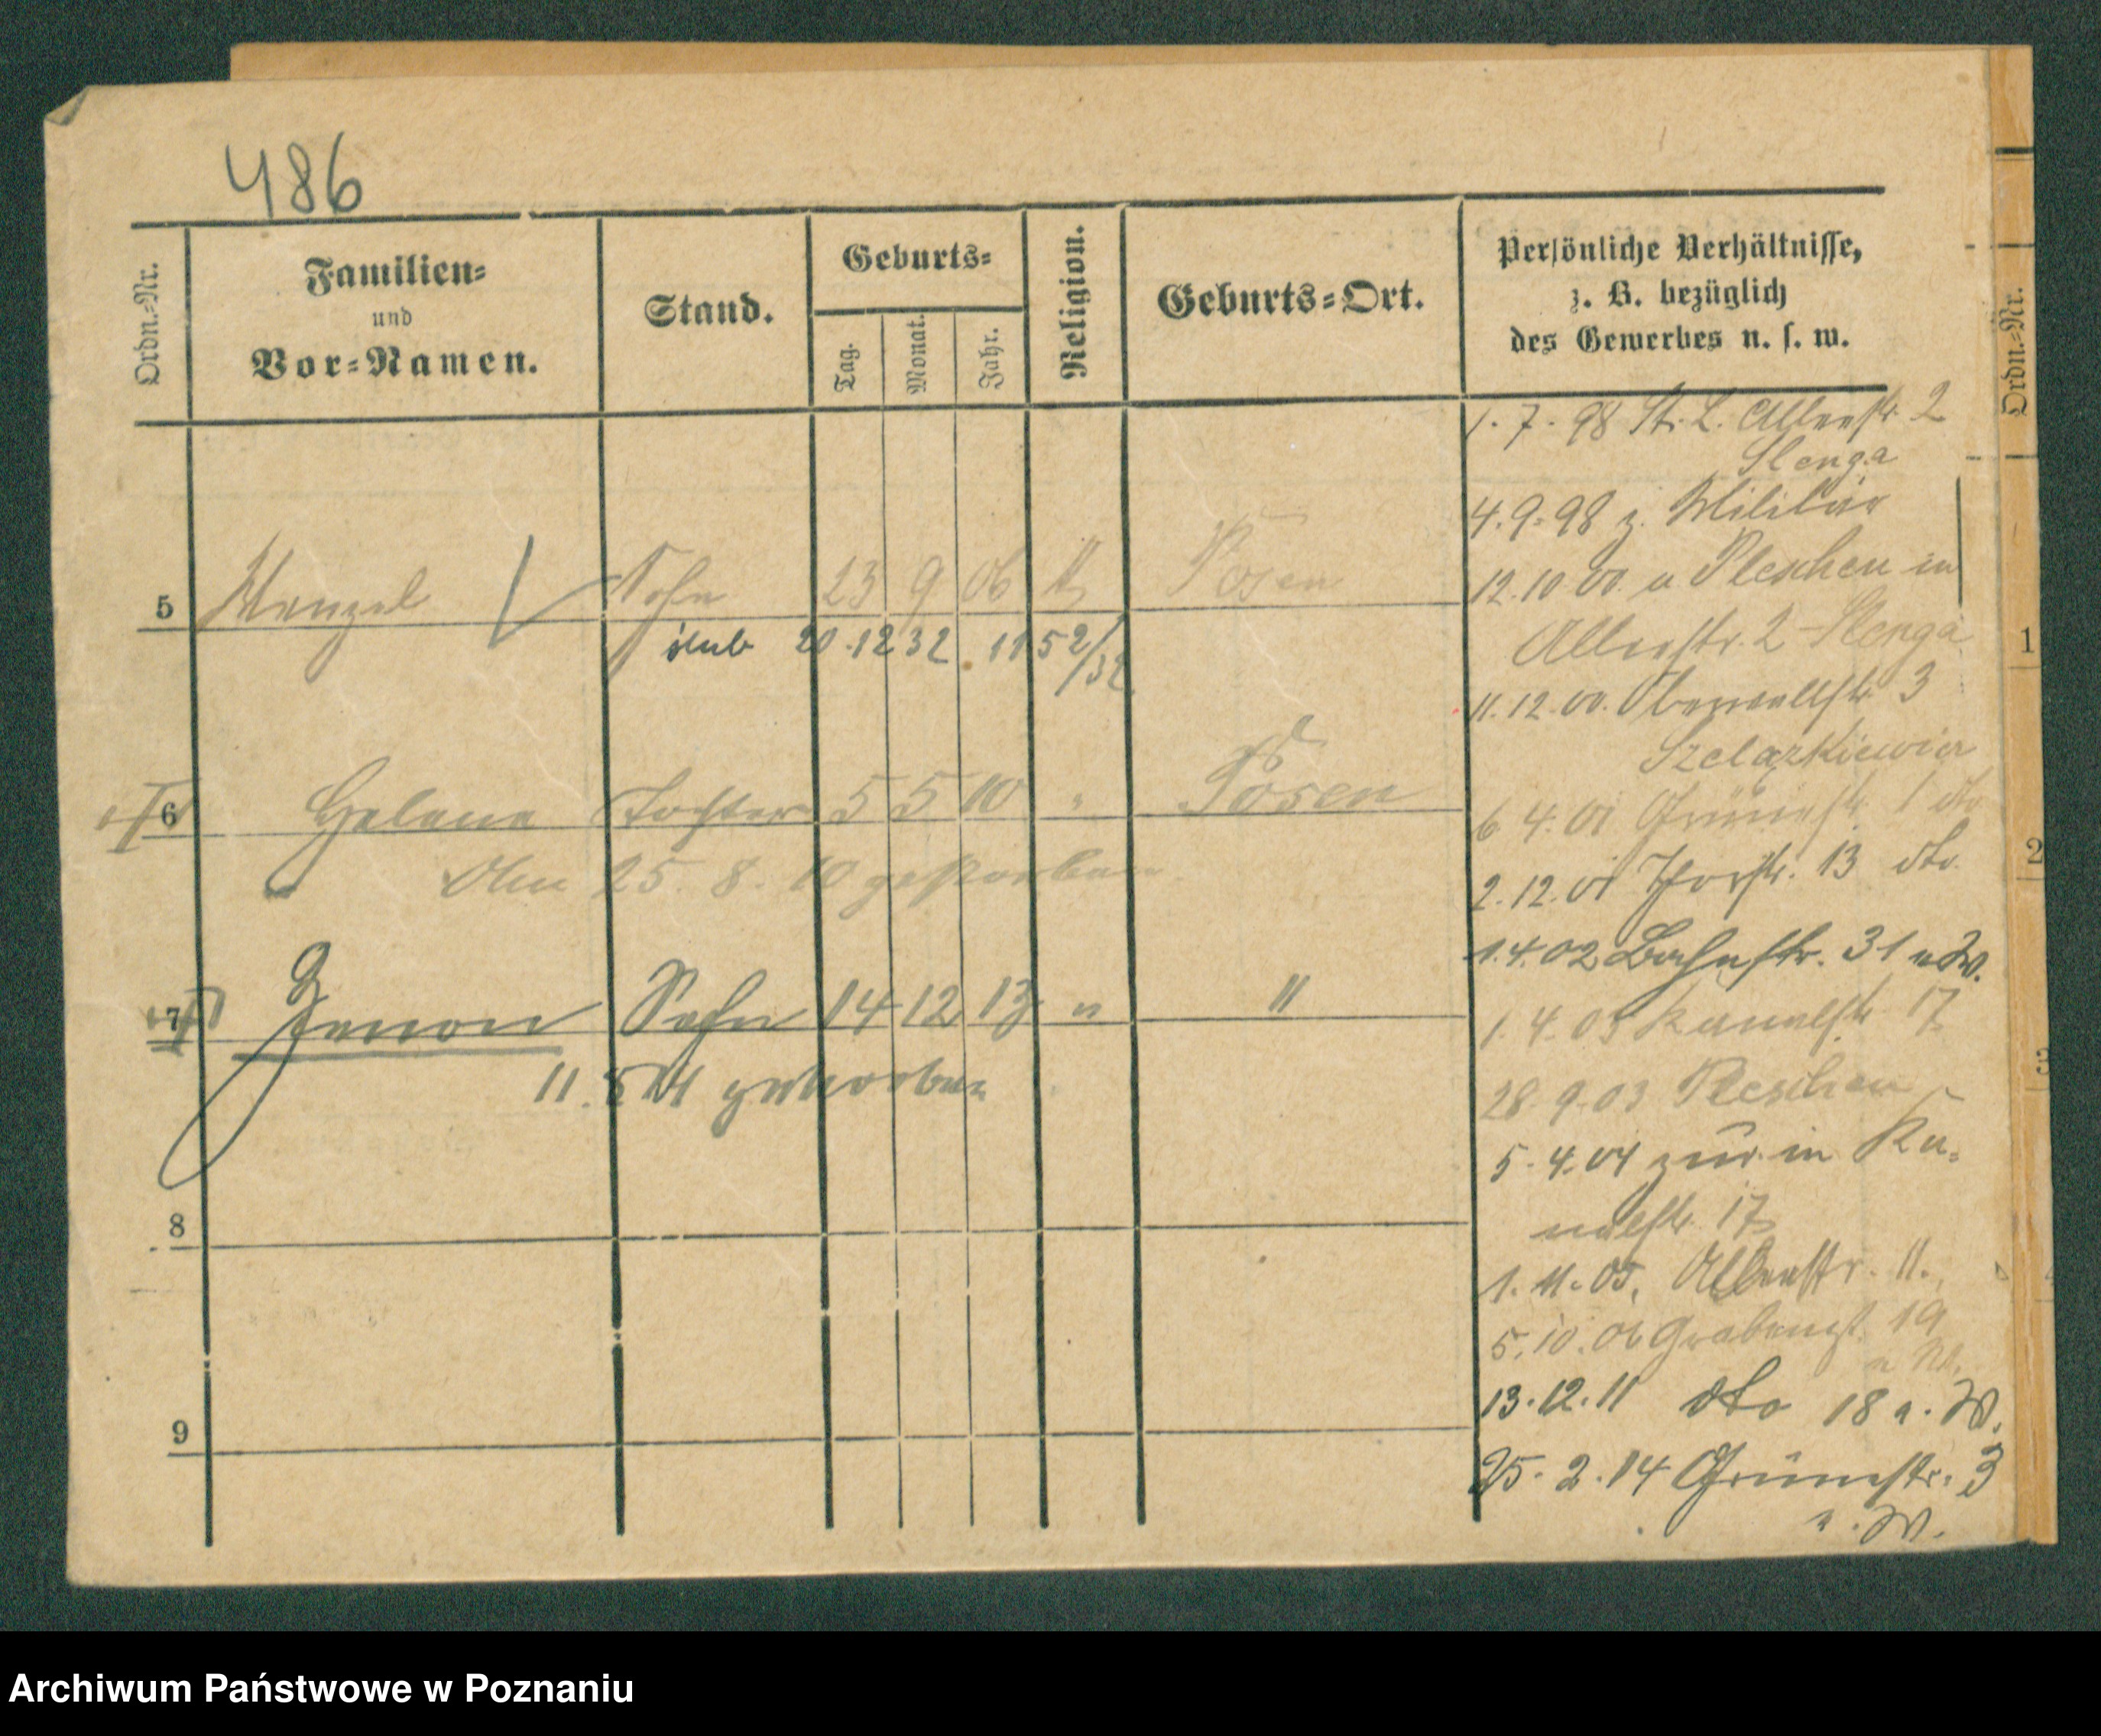 486
Ordn.-Nr.
Familien-
und
Vor-Namen.
Stand.
Geburts-
Tag.
Monat.
Jahr.
Religion.
Geburts-Ort.
Persönliche Verhältnisse,
z. B. bezüglich
des Gewerbes u. s. w.
5 Wenzel Sohn 23 9 06 k Posen
ślub 20.12 32 1152/32
6 Helene Tochter 5 5 10 " Posen
Am 25. 8. 10 gestorben
7 Zenon Sohn 14 12 13 " "
11. 5 14 gestorben
8
9
1. 7. 98 St. L. Allerstr. 2
Slenga
4. 9. 98 z. Militär
12. 10 00. a Pleschen in
Allerstr. 2 Slenga
11. 12. 00. Oberwallstr 3
Szelązkiewicz
6 4. 01 Grünestr 1 dto
2. 12. 01 Thorstr. 13 dto.
1. 4. 02 Bahnstr. 31 u W.
1. 4. 03 Kanalstr 17
28. 9. 03 Pleschen
5. 4. 04 zur. in Ka-
nalstr. 17
1. 11. 05. Allerstr. 11.
5. 10. 06 Grabenst. 19
u W.
13. 12. 11 dto 18 a. W.
25. 2. 14 Grünestr. 3
a. W.
Ordn.-Nr.
1
2
3
Archiwum Państwowe w Poznaniu